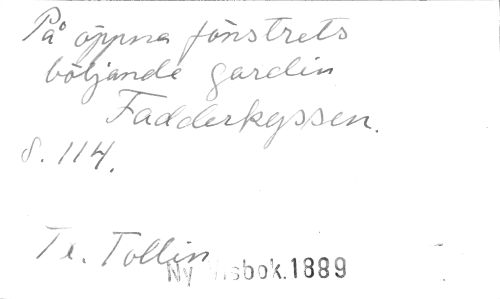 På öppna fönstrets
böljande gardin
Fadderkyssen.
s. 114.
Tr. Tollin
Ny Visbok. 1889